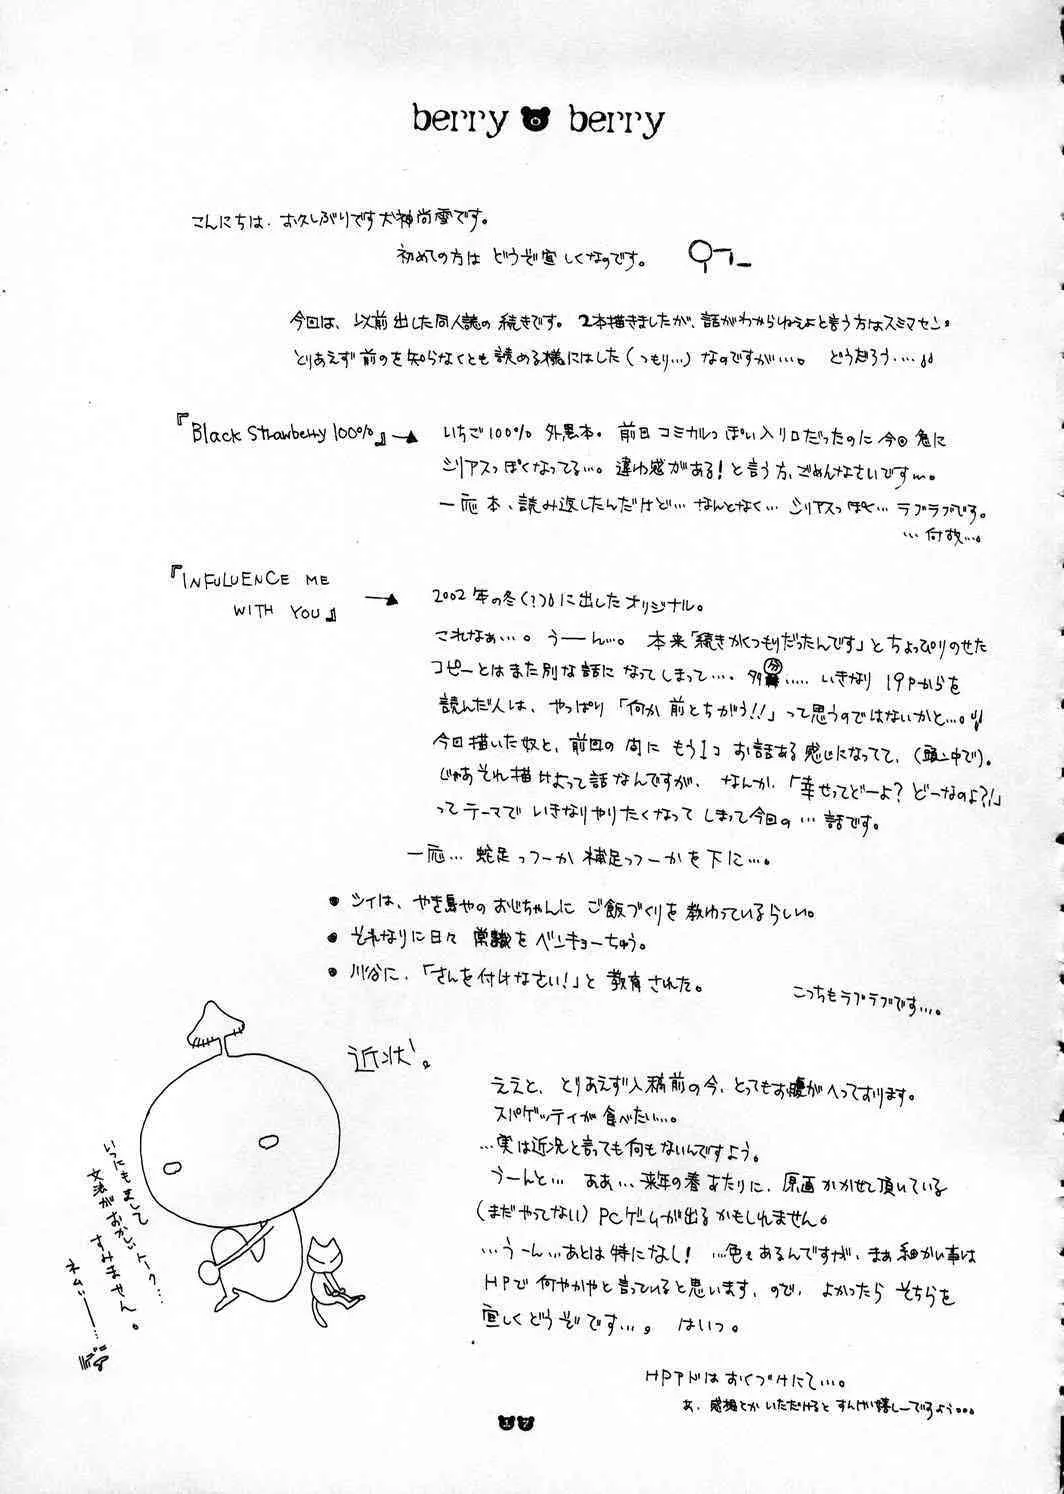 berry berry
こんにちは、お久しぶりです犬神尚雪です。
初めての方は どうぞ宜しくなのです。
今回は、以前出した同人誌の続きです。2本描きましたが、話がわからねぇよと言う方はスミマセン。
とりあえず前のを知らなくとも読める様にはした(つもり…)なのですが…。 どうだろう….
『Black Strawberry 100%』
いちご100% 外思本。前日コミカルっぽい入り口だったのに今回急に
シリアスっぽくなってる…。違わ感がある!と言う方、ごめんなさいです
一応本、読み返したんだけど…なんとなく…シリアスっぽく…ラブラブです。
…何故…。
『INFULUENCE ME
WITH YOU』
2002年の冬(?)に出したオリジナル。
これなぁ…。うーん…。本来「続きかくつもりだったんです」とちょっぴりのせた
コピーとはまた別な話になってしまって…. 多分….. いきなり19Pからを
読んだ人は、やっぱり「何か前とちがう!!」って思うのではないかと…。
今回描いた奴と、前回の間にもう1コお話ある感じになってて、(頭ン中で)。
じゃあそれ描けよって話なんですが、なんか、「幸せってどーよ?どーなのよ?!」
ってテーマでいきなりやりたくなってしまって今回の…話です。
一応…蛇足っつーか補足っつーかを下に…。
● シィは、やき鳥やのおじちゃんにご飯づくりを教わっているらしい。
● それなりに日々常識をベンキョーちゅう。
● 川谷に、「さんを付けなさい!」と教育された。
こっちもラブラブです…。
近状。
ええと、とりあえず入稿前の今、とってもお腹がへっております。
スパゲッティが食べたい…。
…実は近況と言っても何もないんですよう。
うーんと… ああ…来年の春あたりに、原画かかせて頂いている
(まだやってない)PCゲームが出るかもしれません。
…うーん…あとは特になし! …色々あるんですが、まぁ細かい事は
HPで何やかやと言っていると思います、ので、よかったらそちらを
宜しくどうぞです…。 はいっ。
HPアドはおくづけにて…。
あ、感想とかいただけるとすんげい嬉しーですよう…
いつにもまして
文法がおかしいトーク….
すみません。
ネムいー…
17